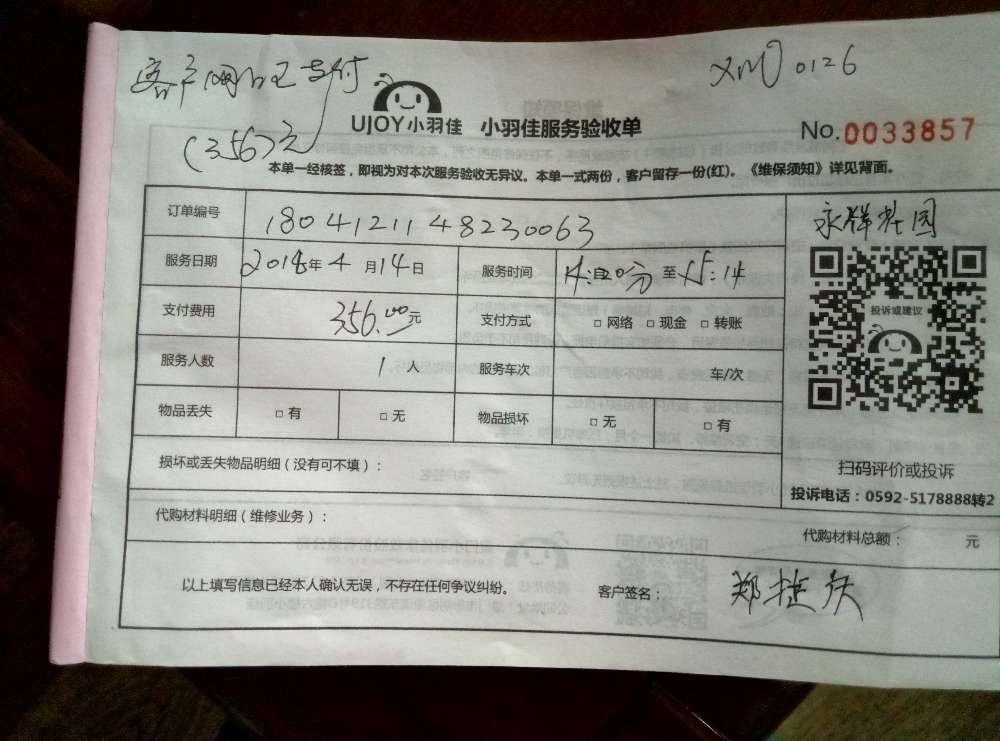 客户网上已支付
(356)元
XM 0126
UJOY小羽佳 小羽佳服务验收单
No.0033857
本单一经核签，即视为对本次服务验收无异议。本单一式两份，客户留存一份(红)。《维保须知》详见背面。
订单编号 1804121148230063
永祥花园
服务日期 2018年4月14日 服务时间 14:20分至15:14
投诉或建议
支付费用 356.00元 支付方式 □网络 □现金 □转账
服务人数 1人 服务车次 车/次
物品丢失 □有 □无 物品损坏 □无 □有
损坏或丢失物品明细（没有可不填）：
扫码评价或投诉
投诉电话：0592-5178888转2
代购材料明细（维修业务）：
代购材料总额： 元
以上填写信息已经本人确认无误，不存在任何争议纠纷。 客户签名：郑捷庆